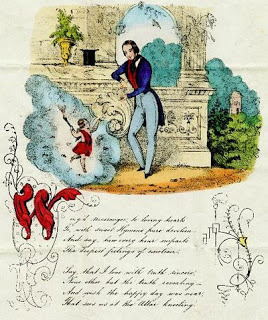 W
ing'd messenger, to loving hearts
Go, with sweet Hymen's pure devotion
And say, how every hour imparts
The deepest feelings of emotion.
Say, that I love with truth sincere,
None other hath the truth revealing—
And wish the happy day was near,
That sees us at the Altar kneeling.